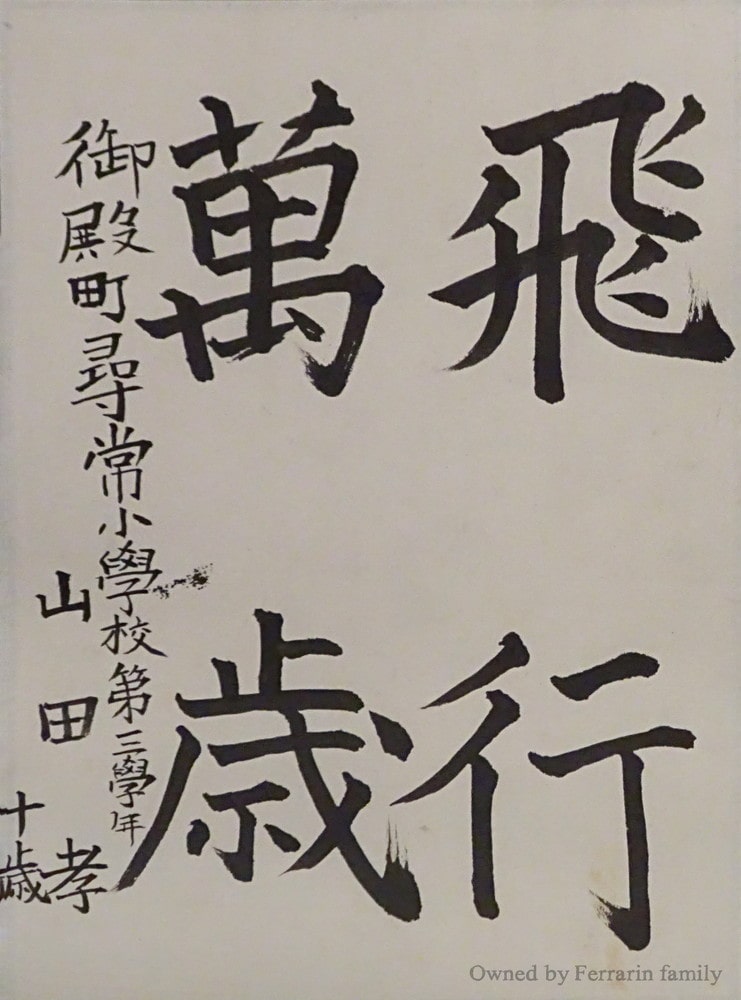 飛行
萬歳
御殿町尋常小學校第三學年
山田孝
十歳
Owned by Ferrarin family